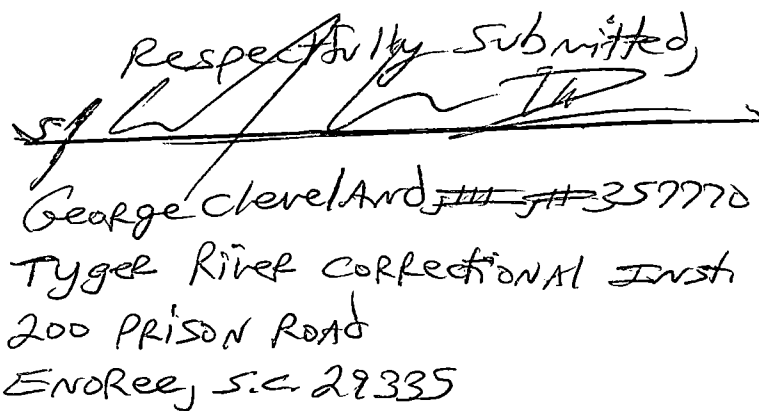 Respectfully Submitted,
s/
George Cleveland, III, #357770
Tyger River Correctional Inst.
200 Prison Road
Enoree, S.C. 29335